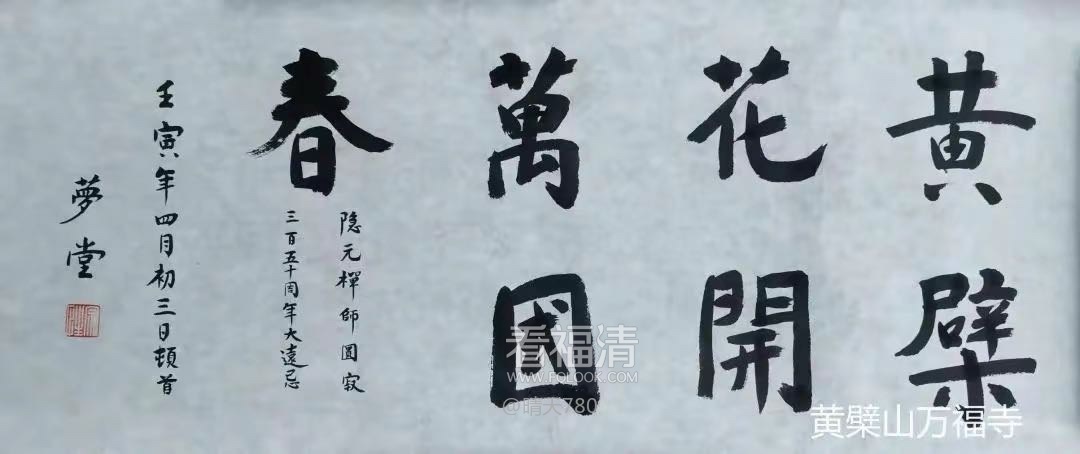 黄檗
花開
萬國
春
隐元禪師圓寂
三百五十周年大遠忌
壬寅年四月初三日頓首
夢堂
看福清
WWW.FQLOOK.COM
@晴天780
黄檗山万福寺